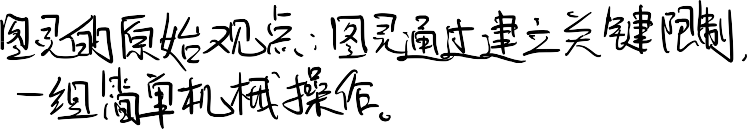 图灵的原始观点：图灵通过建立关键限制，
一组简单机械操作。